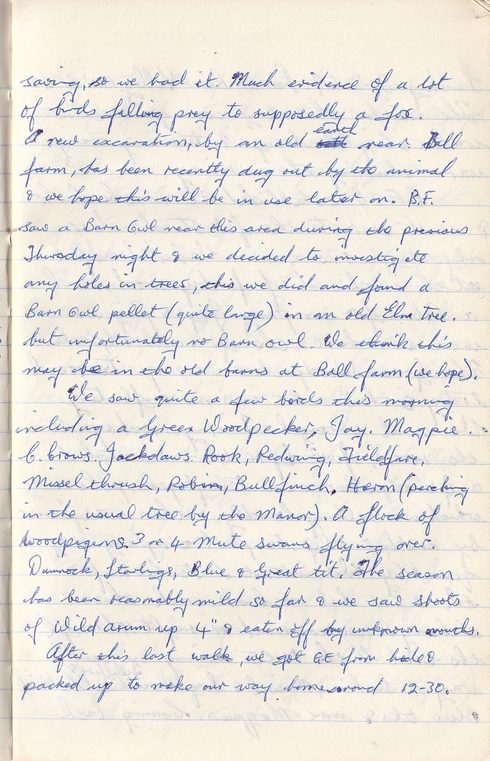 saving, so we had it. Much evidence of a lot
of birds falling prey to supposedly a fox.
A new excavation, by an old earth near Ball
farm, has been recently dug out by the animal
& we hope this will be in use later on. B.F.
saw a Barn Owl near this area during the previous
Thursday night & we decided to investigate
any holes in trees, this we did and found a
Barn Owl pellet (quite large) in an old Elm Tree.
but unfortunately no Barn owl. We think this
may be in the old barns at Ball farm (we hope).
We saw quite a few birds this morning
including a Green Woodpecker, Jay. Magpie.
C. Crows. Jackdaws. Rook, Redwing, Fieldfare,
Missel thrush, Robin, Bullfinch, Heron (perching
in the usual tree by the Manor). A flock of
Woodpigins. 3 or 4 Mute swans flying over.
Dunnock, Starlings, Blue & Great tit. The season
has been reasonably mild so far & we saw shoots
of Wild arum up 4" & eaten off by unknown mouths.
After this last walk, we got GE from hide &
packed up to make our way home around 12-30.